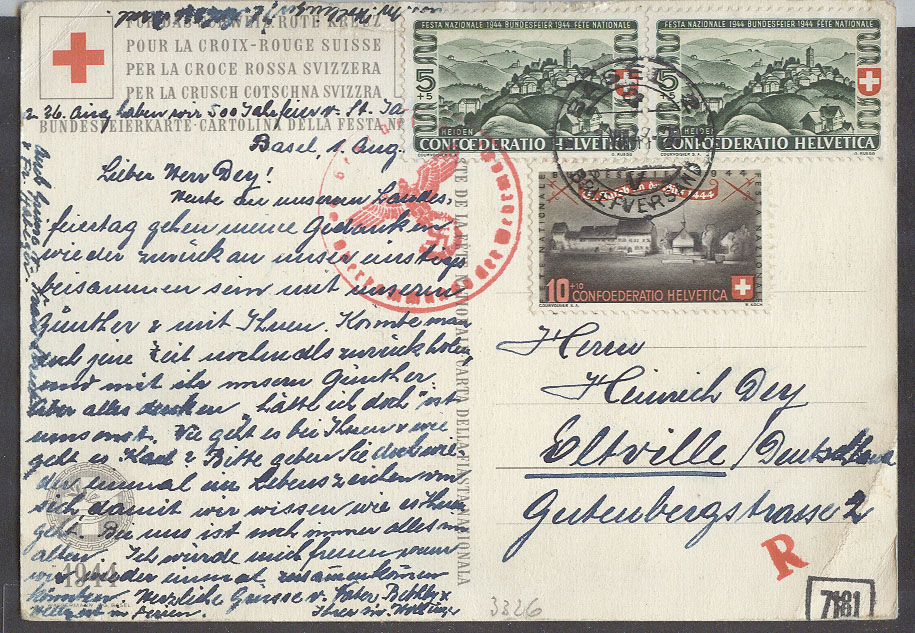 POUR LA CROIX-ROUGE SUISSE
PER LA CROCE ROSSA SVIZZERA
PER LA CRUSCH COTSCHNA SVIZZRA
26. Aug. haben wir 500 Jahrfeier v. St.
BUNDESFEIERKARTE · CARTOLINA DELLA FESTA
Basel, 1. Aug.
Lieber Herr Dey!
Heute an unserem Landes-
feiertag gehen meine Gedanken
wieder zurück an unser einstiges
beisammen sein mit unserm
Günther & mit Ihnen. Könnte man
doch jene Zeit nochmals zurück holen
und mit ihr unsern Günther
aber alles denken, "hätt ich doch" ist
umsonst. Wie geht es bei Ihnen & wie
geht es Karl? Bitte geben Sie doch wie-
der einmal ein Lebenszeichen von
sich damit wir wissen wie es Ihnen
geht. Bei uns ist noch immer alles im
alten. Ich würde mich freuen wenn
wir wieder einmal zusammenkommen
könnten. Herzliche Grüsse v. Vater
in Ferien. Ihren
1944
CARTE DE LA FÊTE NATIONALE CARTA DELLA FIASTA NAZIUNALA
FESTA NAZIONALE 1944 BUNDESFEIER 1944 FÊTE NATIONALE
5+5
HEIDEN
CONFOEDERATIO HELVETICA
COURVOISIER S.A.
FESTA NAZIONALE 1944 BUNDESFEIER 1944 FÊTE NATIONALE
5+5
HEIDEN
CONFOEDERATIO HELVETICA
COURVOISIER S.A.
BASEL 2
BRIEFVERSAND
1944
10+10 CONFOEDERATIO HELVETICA
COURVOISIER S.A.
Oberkommando der
Herrn
Heinrich Dey
Eltville / Deutschland
Gutenbergstrasse 2
R
3326
7181